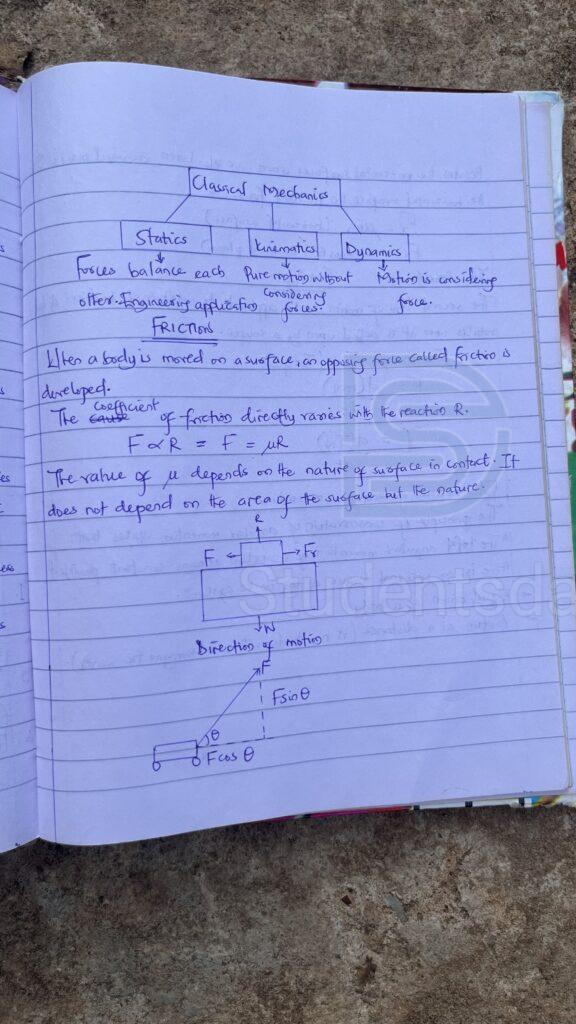 Classical Mechanics
Statics Kinematics Dynamics
Forces balance each Pure motion without Motion is considering
other. Engineering application considering forces. force.
FRICTION
When a body is moved on a surface, an opposing force called friction is
developed.
The coefficient of friction directly varies with the reaction R.
F ∝ R = F = μR
The value of μ depends on the nature of surface in contact. It
does not depend on the area of the surface but the nature.
R
F Fr
Studentsda
W
Direction of motion
F
F sin θ
θ
F cos θ